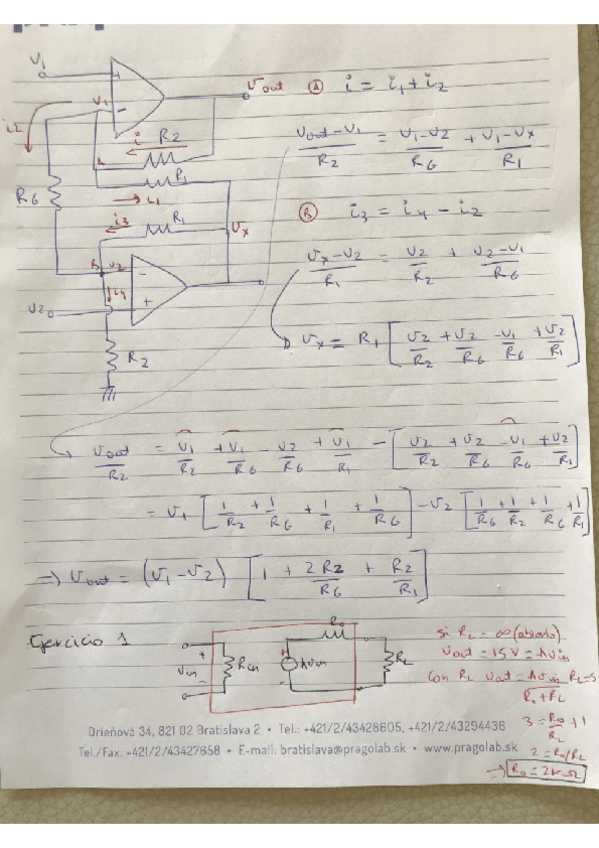 V1
Vout Ⓐ i = i1 + i2
+
V1 -
i2
i R2
(Vout - V1)/R2 = (V1 - V2)/RG + (V1 - Vx)/R1
A
R1
RG
i1
i3 R1
Ⓑ i3 = i4 - i2
Vx
B V2 -
(Vx - V2)/R1 = V2/R2 + (V2 - V1)/RG
i4
V2 +
Vx = R1 [V2/R2 + V2/RG - V1/RG + V2/R1]
R2
Vout/R2 = V1/R2 + V1/RG - V2/RG + V1/R1 - [V2/R2 + V2/RG - V1/RG + V2/R1]
= V1 [1/R2 + 1/RG + 1/R1 + 1/RG] - V2 [1/RG + 1/R2 + 1/RG + 1/R1]
=> Vout = (V1 - V2) [1 + 2R2/RG + R2/R1]
Ejercicio 1
Ro
+
Vin
-
Rin
+
AVin
RL
si RL = ∞ (abierto)
Vout = 15V = AVin
Con RL Vout = AVin RL/(Ro + RL) = 5
3 = Ro/RL + 1
2 = Ro/RL
=> Ro = 2kΩ
Drieňová 34, 821 02 Bratislava 2 • Tel.: +421/2/43428605, +421/2/43294436
Tel./Fax: +421/2/43427658 • E-mail: bratislava@pragolab.sk • www.pragolab.sk